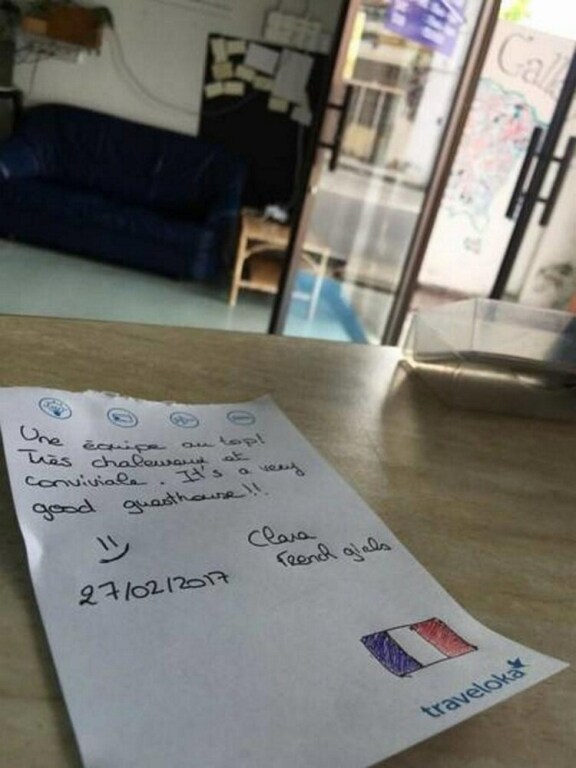 Une équipe au top!
Très chaleureux et
conviviale. It's a very
good guesthouse!!
Clara
French girls
27/02/2017
traveloka